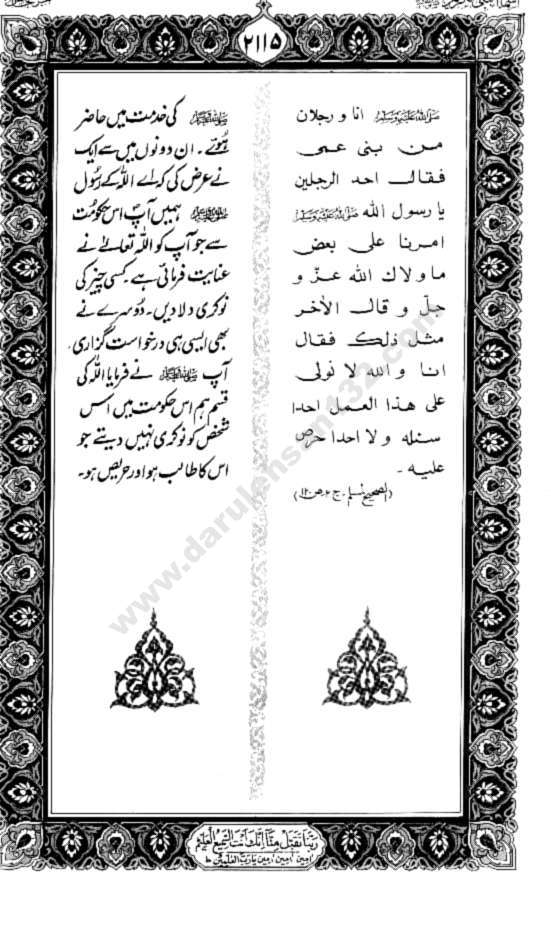 ۲۱۱۵
ﷺ انا و رجلان
من بنى عمى
فقال احد الرجلين
يا رسول الله ﷺ
امرنا على بعض
ما ولاك الله عزّ و
جلّ و قال الأخر
مثل ذلك فقال
انا و الله لا نولى
على هذا العمل احدا
سئله و لا احدا حرص
عليه -
(الصحيح لمسلم - ج ۲ ص ۱۲۰)
ﷺ کی خدمت میں حاضر
ہُوئے ۔ ان دونوں میں سے ایک
نے عرض کی کہ اے اللہ کے رسُول
ﷺ ہمیں آپ اس حکومُت
سے جو آپ کو اللہ تعالےٰ نے
عنایت فرمائی ہے ۔ کسی چیز کی
نوکری دلا دیں ۔ دُوسرے نے
بھی ایسی ہی درخواست گزاری ۔
آپ ﷺ نے فرمایا اللہ کی
قسم ہم اس حکومت میں اس
شخص کو نوکری نہیں دیتے جو
اس کا طالب ہو اور حریص ہو ۔
www.darulehsan132.com
ربنا تقبل منا انك انت السميع العليم
امين امين امين يا رب العلمين ط